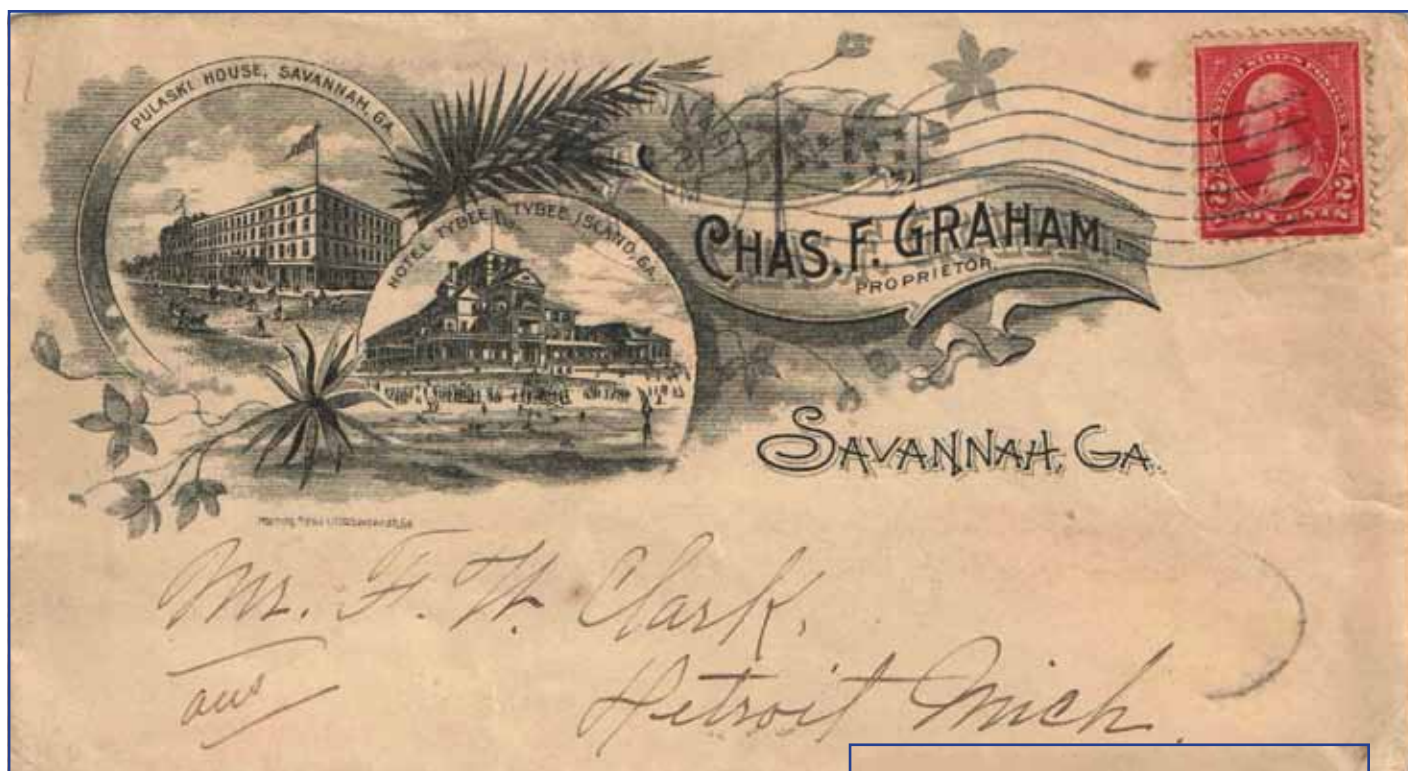 PULASKI HOUSE, SAVANNAH, GA.
HOTEL TYBEE, TYBEE ISLAND, GA.
CHAS. F. GRAHAM,
PROPRIETOR.
SAVANNAH, GA.
2 2
Mr. F. W. Clark,
Detroit Mich.